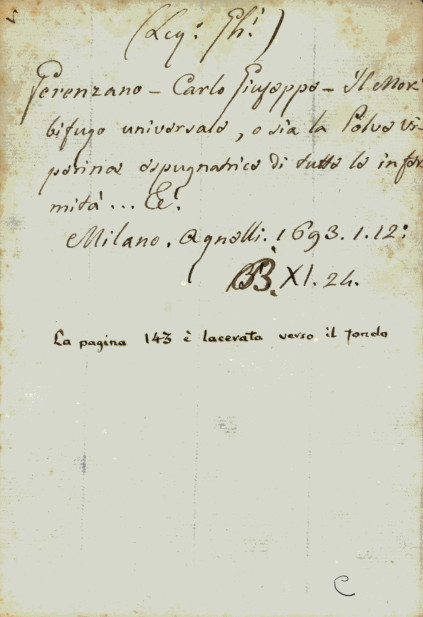 (Leg.ˢ Ph.ˢ)
Gerenzano - Carlo Giuseppe - Il Mor
bifugo universale, o sia la Polve vi
perina espugnatrice di tutte le infer
mità ... &c.
Milano. Agnelli. 1693. 1. 12:
BB. XI. 24.
La pagina 143 è lacerata verso il fondo
C